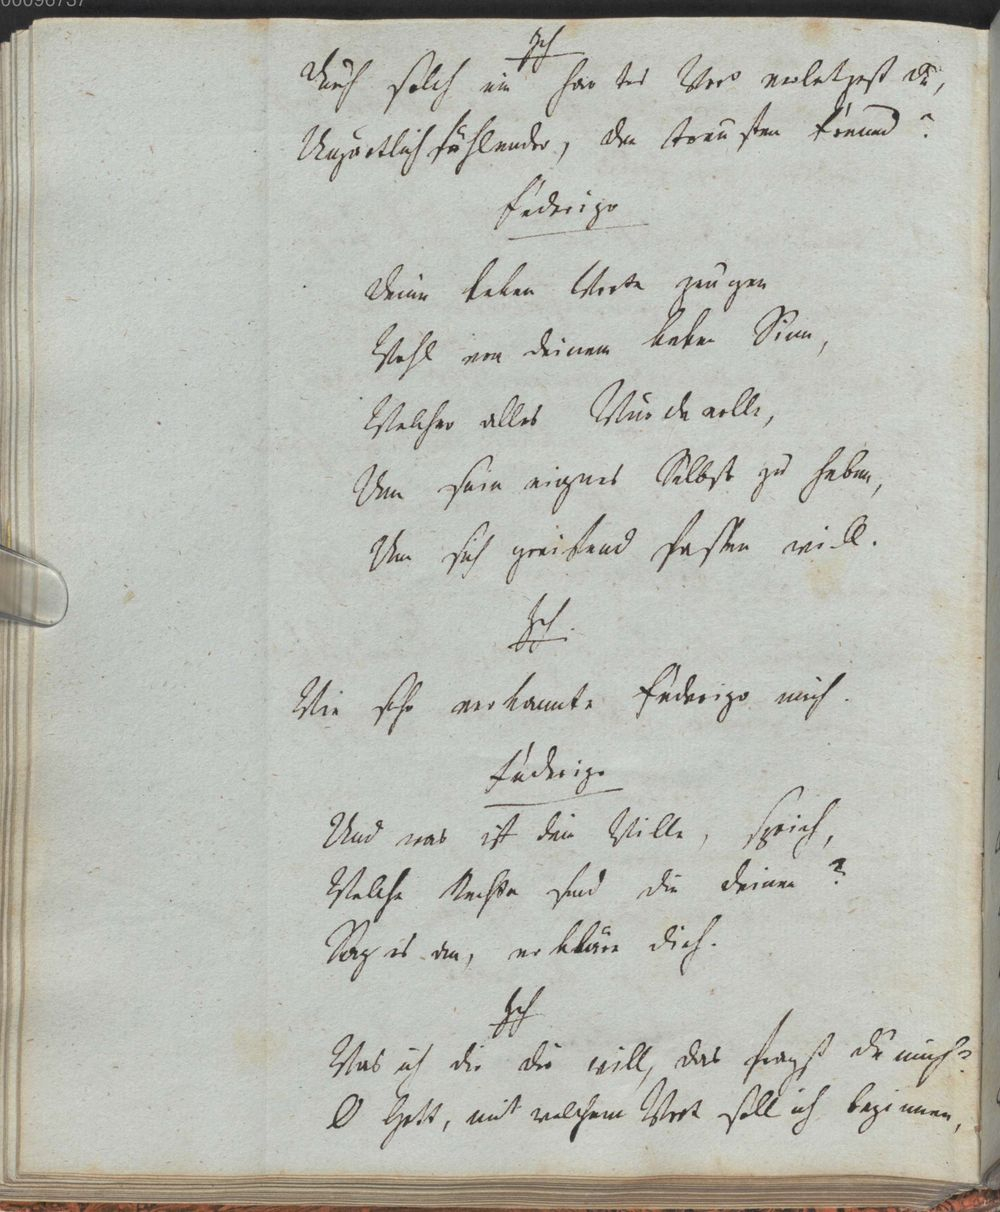 00096737
Ich
Durch solch ein hartes Wort verletzest du,
Unzärtlichfühlender, den treusten Freund?
Federigo
Deine Worte zeugen
Wohl von deinem Sinn,
Welcher alles Würdevolle,
Um sein eignes Selbst zu heben,
Um sich greifend fassen will.
Ich
Wie sehr verkannte Federigo mich.
Federigo
Und was ist dein Wille, sprich,
Welche Rechte sind die deinen?
Sag es an, erkläre dich.
Ich
Was ich die will, das fragst du mich?
O Gott, mit welchem Wort soll ich beginnen,